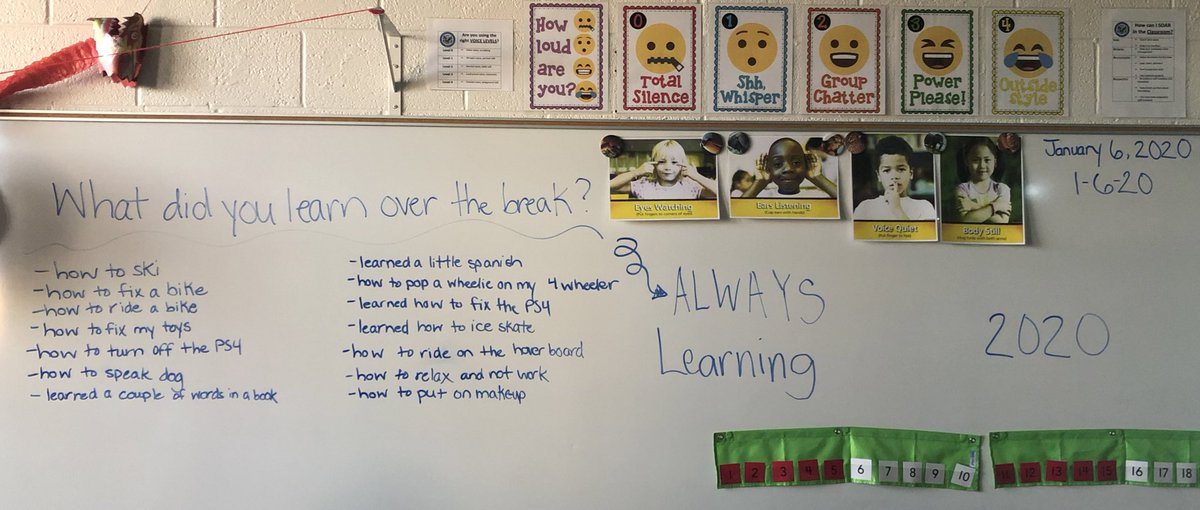 Are you using the
right VOICE LEVELS?
How
loud
are
you?
0
Total
Silence
1
Shh,
Whisper
2
Group
Chatter
3
Power
Please!
4
Outside
Style
How can I SOAR
in the Classroom?
Eyes Watching
Ears Listening
Voice Quiet
Body Still
January 6, 2020
1-6-20
What did you learn over the break?
- how to ski
- how to fix a bike
- how to ride a bike
- how to fix my toys
- how to turn off the PS4
- how to speak dog
- learned a couple of words in a book
- learned a little spanish
- how to pop a wheelie on my 4 wheeler
- learned how to fix the PS4
- learned how to ice skate
- how to ride on the hover board
- how to relax and not work
- how to put on makeup
ALWAYS
Learning
2020
1 2 3 4 5 6 7 8 9 10
11 12 13 14 15 16 17 18